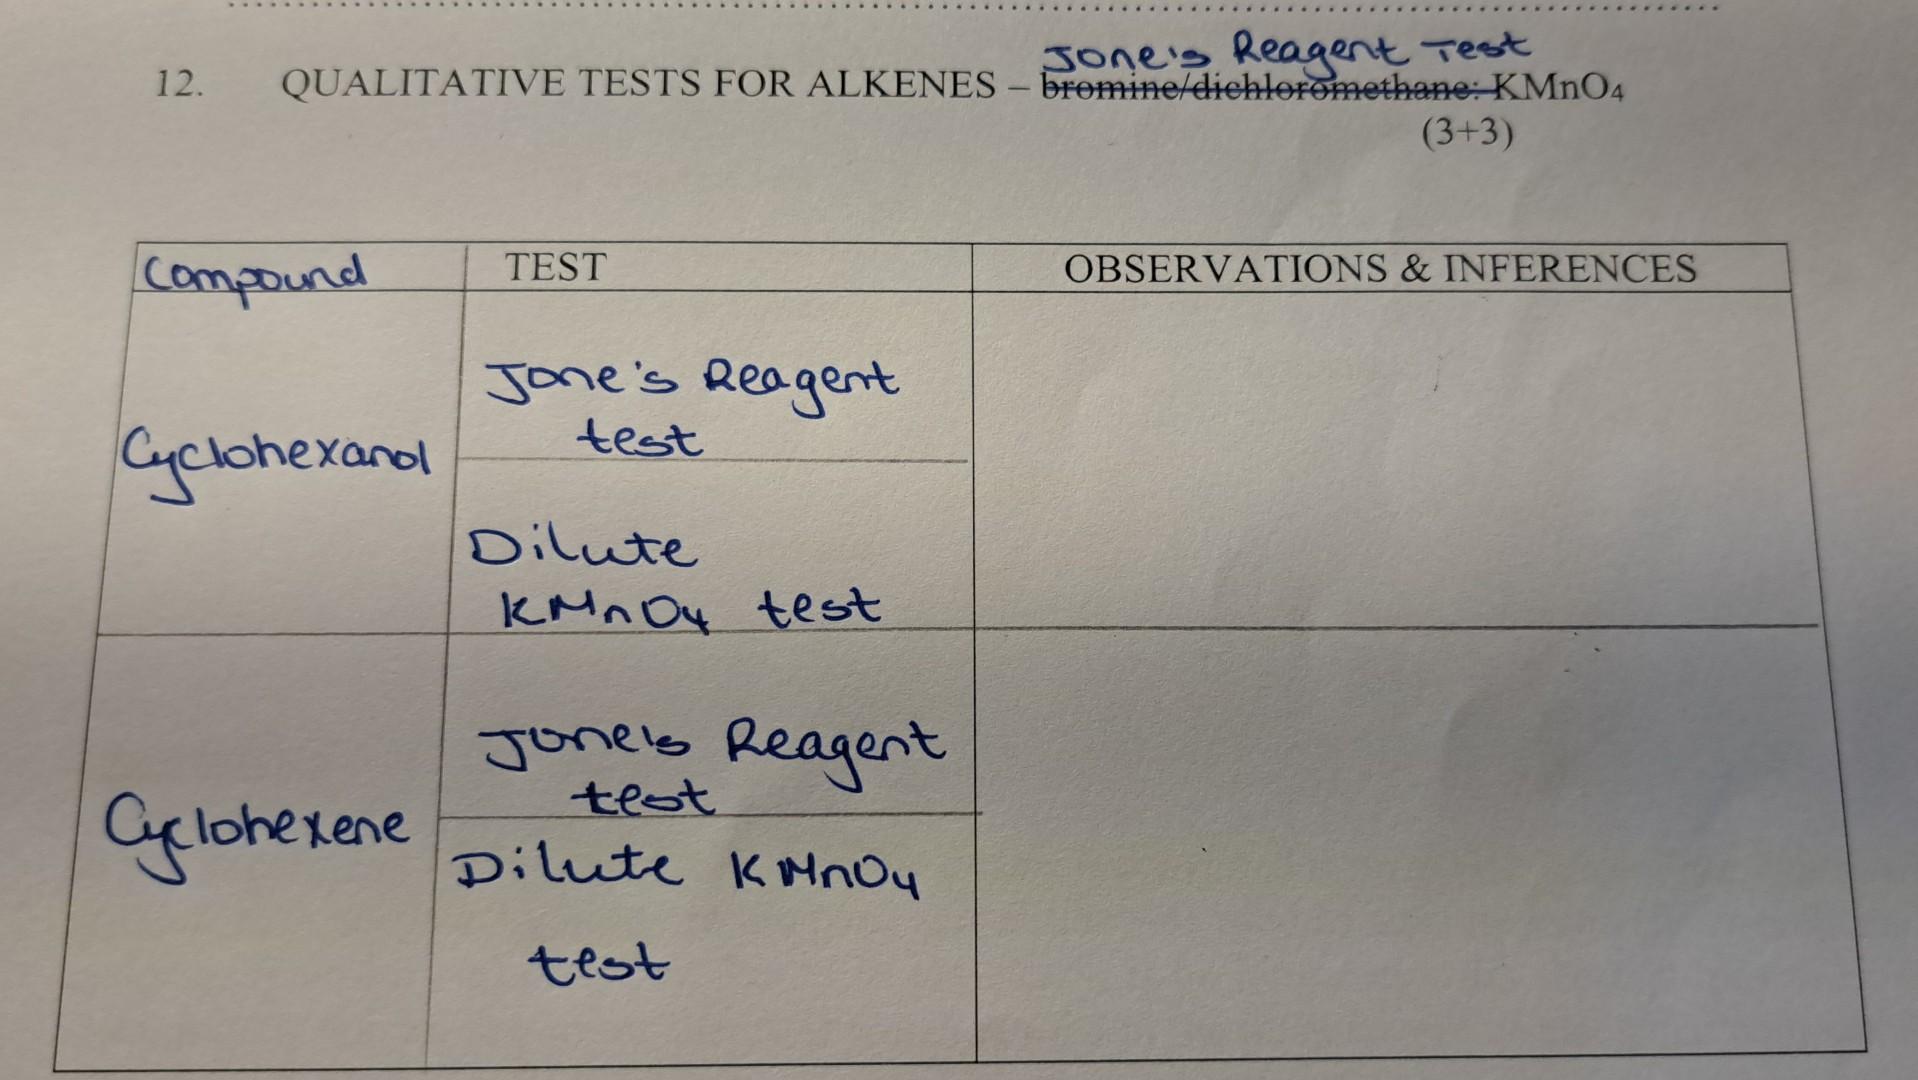 Jone's Reagent Test
12. QUALITATIVE TESTS FOR ALKENES – bromine/dichloromethane: KMnO4
(3+3)
Compound TEST OBSERVATIONS & INFERENCES
Jone's Reagent
test
Cyclohexanol
Dilute
KMnO4 test
Jone's Reagent
test
Cyclohexene
Dilute KMnO4
test